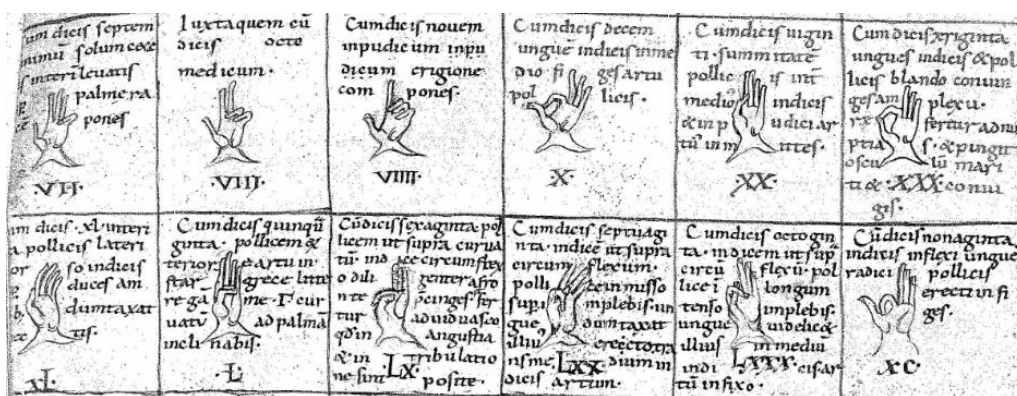 um dicis septem
minimū solummodo
palmę ra
pones
VII·
Iuxta quem cū
dicis octo
medicum·
·VIII·
Cum dicis novem
inpudicum inpu
dicum e rigione
com pones·
VIIII·
Cum dicis decem
ungue indicis inme
dio fi ges artu
pol licis·
·X·
Cum dicis uigin
ti· summitatē
pollic is int
medio indicis
& inp udici ar
tū inm ittes·
·XX·
Cum dicis xxxginta
ungues indicis & pol
licis blando coniun
ges am plexu·
fertur adnu
ptia s· & pingit
oscu lū mari
ti & XXX coniu
gis·
um dicis· xl· interi
a pollicis lateri
or so indicis
duces am
dumtaxat
tis·
xL
Cum dicis quinquā
ginta· pollicem &
terior e artu in
star grece litte
re ga me· Γ· cur
vatū ad palmā
incli nabis·
·L·
Cū dicis sexaginta pol
licem ut supra curva
tū· ind ice circumflex
o dili genter afro
nte cinges· fer
tur ad viduas eo
qd in angustia
& in tribulatio
ne sint posite·
LX·
Cum dicis septuagi
nta· indice ut supra
circum flexum·
polli ce inmisso
supi mplebis· un
gue dumtaxat
illiu erecto tra
nsme dium in
dicis artum·
LXX
Cum dicis octogin
ta· indicem ut supˢ
circū flexū· pol
lice i longum
tenso mplebis·
ungue videlic&
illius in mediū
indi cis ar
tū infixo·
LXXX·
Cū dicis nonaginta
indicis inflexi ungue
radici pollicis
erecti infi
ges·
xc·